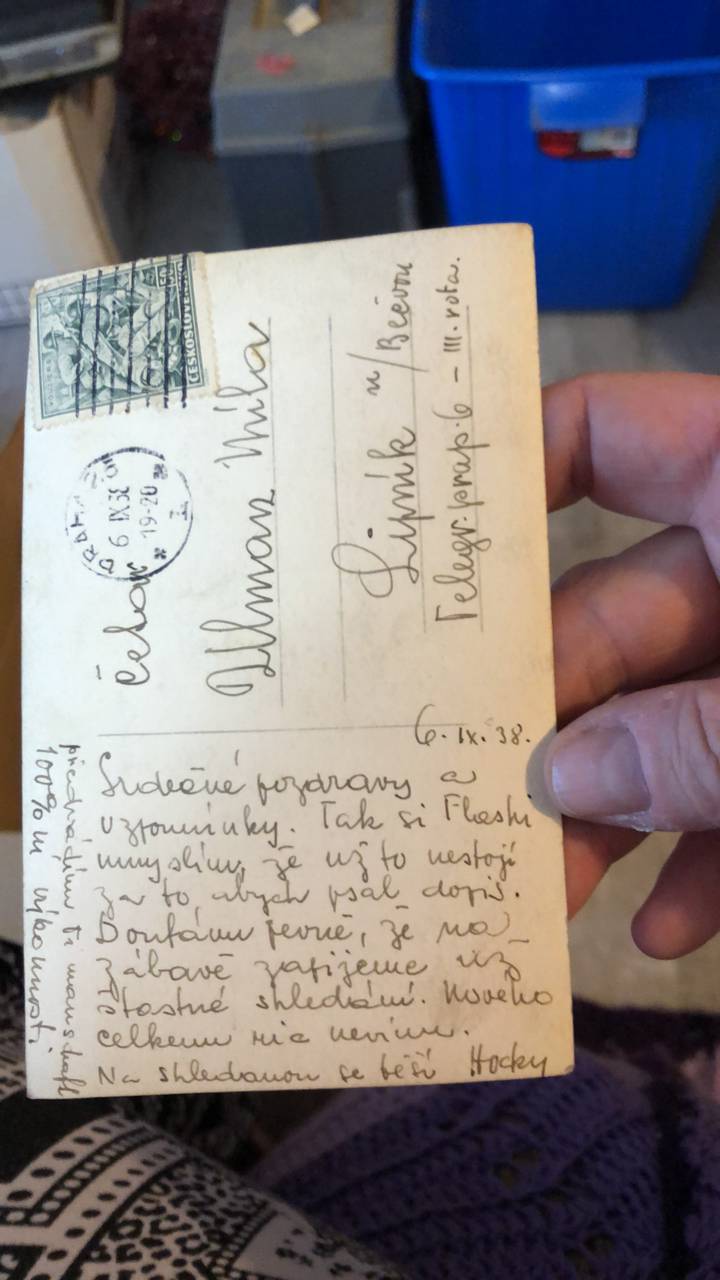 ČESKOSLOVENSKO
50
PRAHA
6 IX 38
19-20
Četař
Ullman Míla
Lipník n/Bečvou
Telegr. prap. 6 – III. rota.
6. IX. 38.
Srdečné pozdravy a
vzpomínky. Tak si
myslím, že už to nestojí
za to, abych psal dopis.
Doufám pevně, že na
zábavě zapijeme už
šťastné shledání. Nového
celkem nic nevím.
Na shledanou se těší Hocky
předvádím ti manschaft
100% ní výkonnosti.